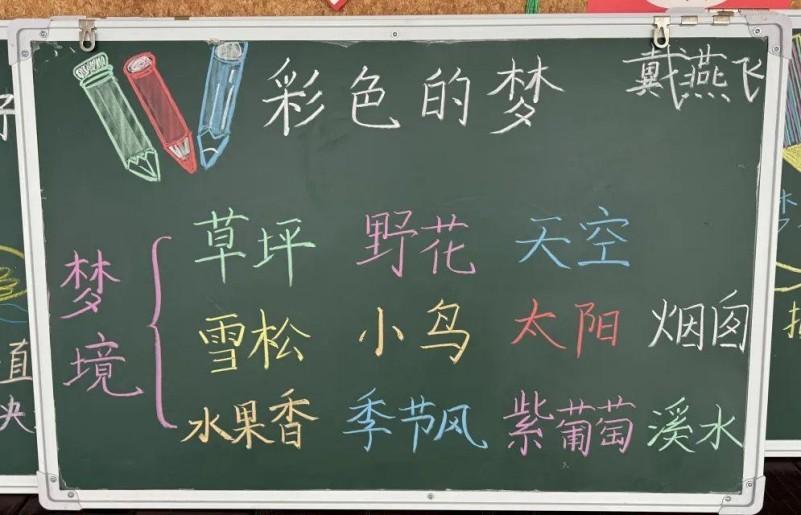 彩色的梦 戴燕飞
梦境
草坪 野花 天空
雪松 小鸟 太阳 烟囱
水果香 季节风 紫葡萄 溪水
直
央